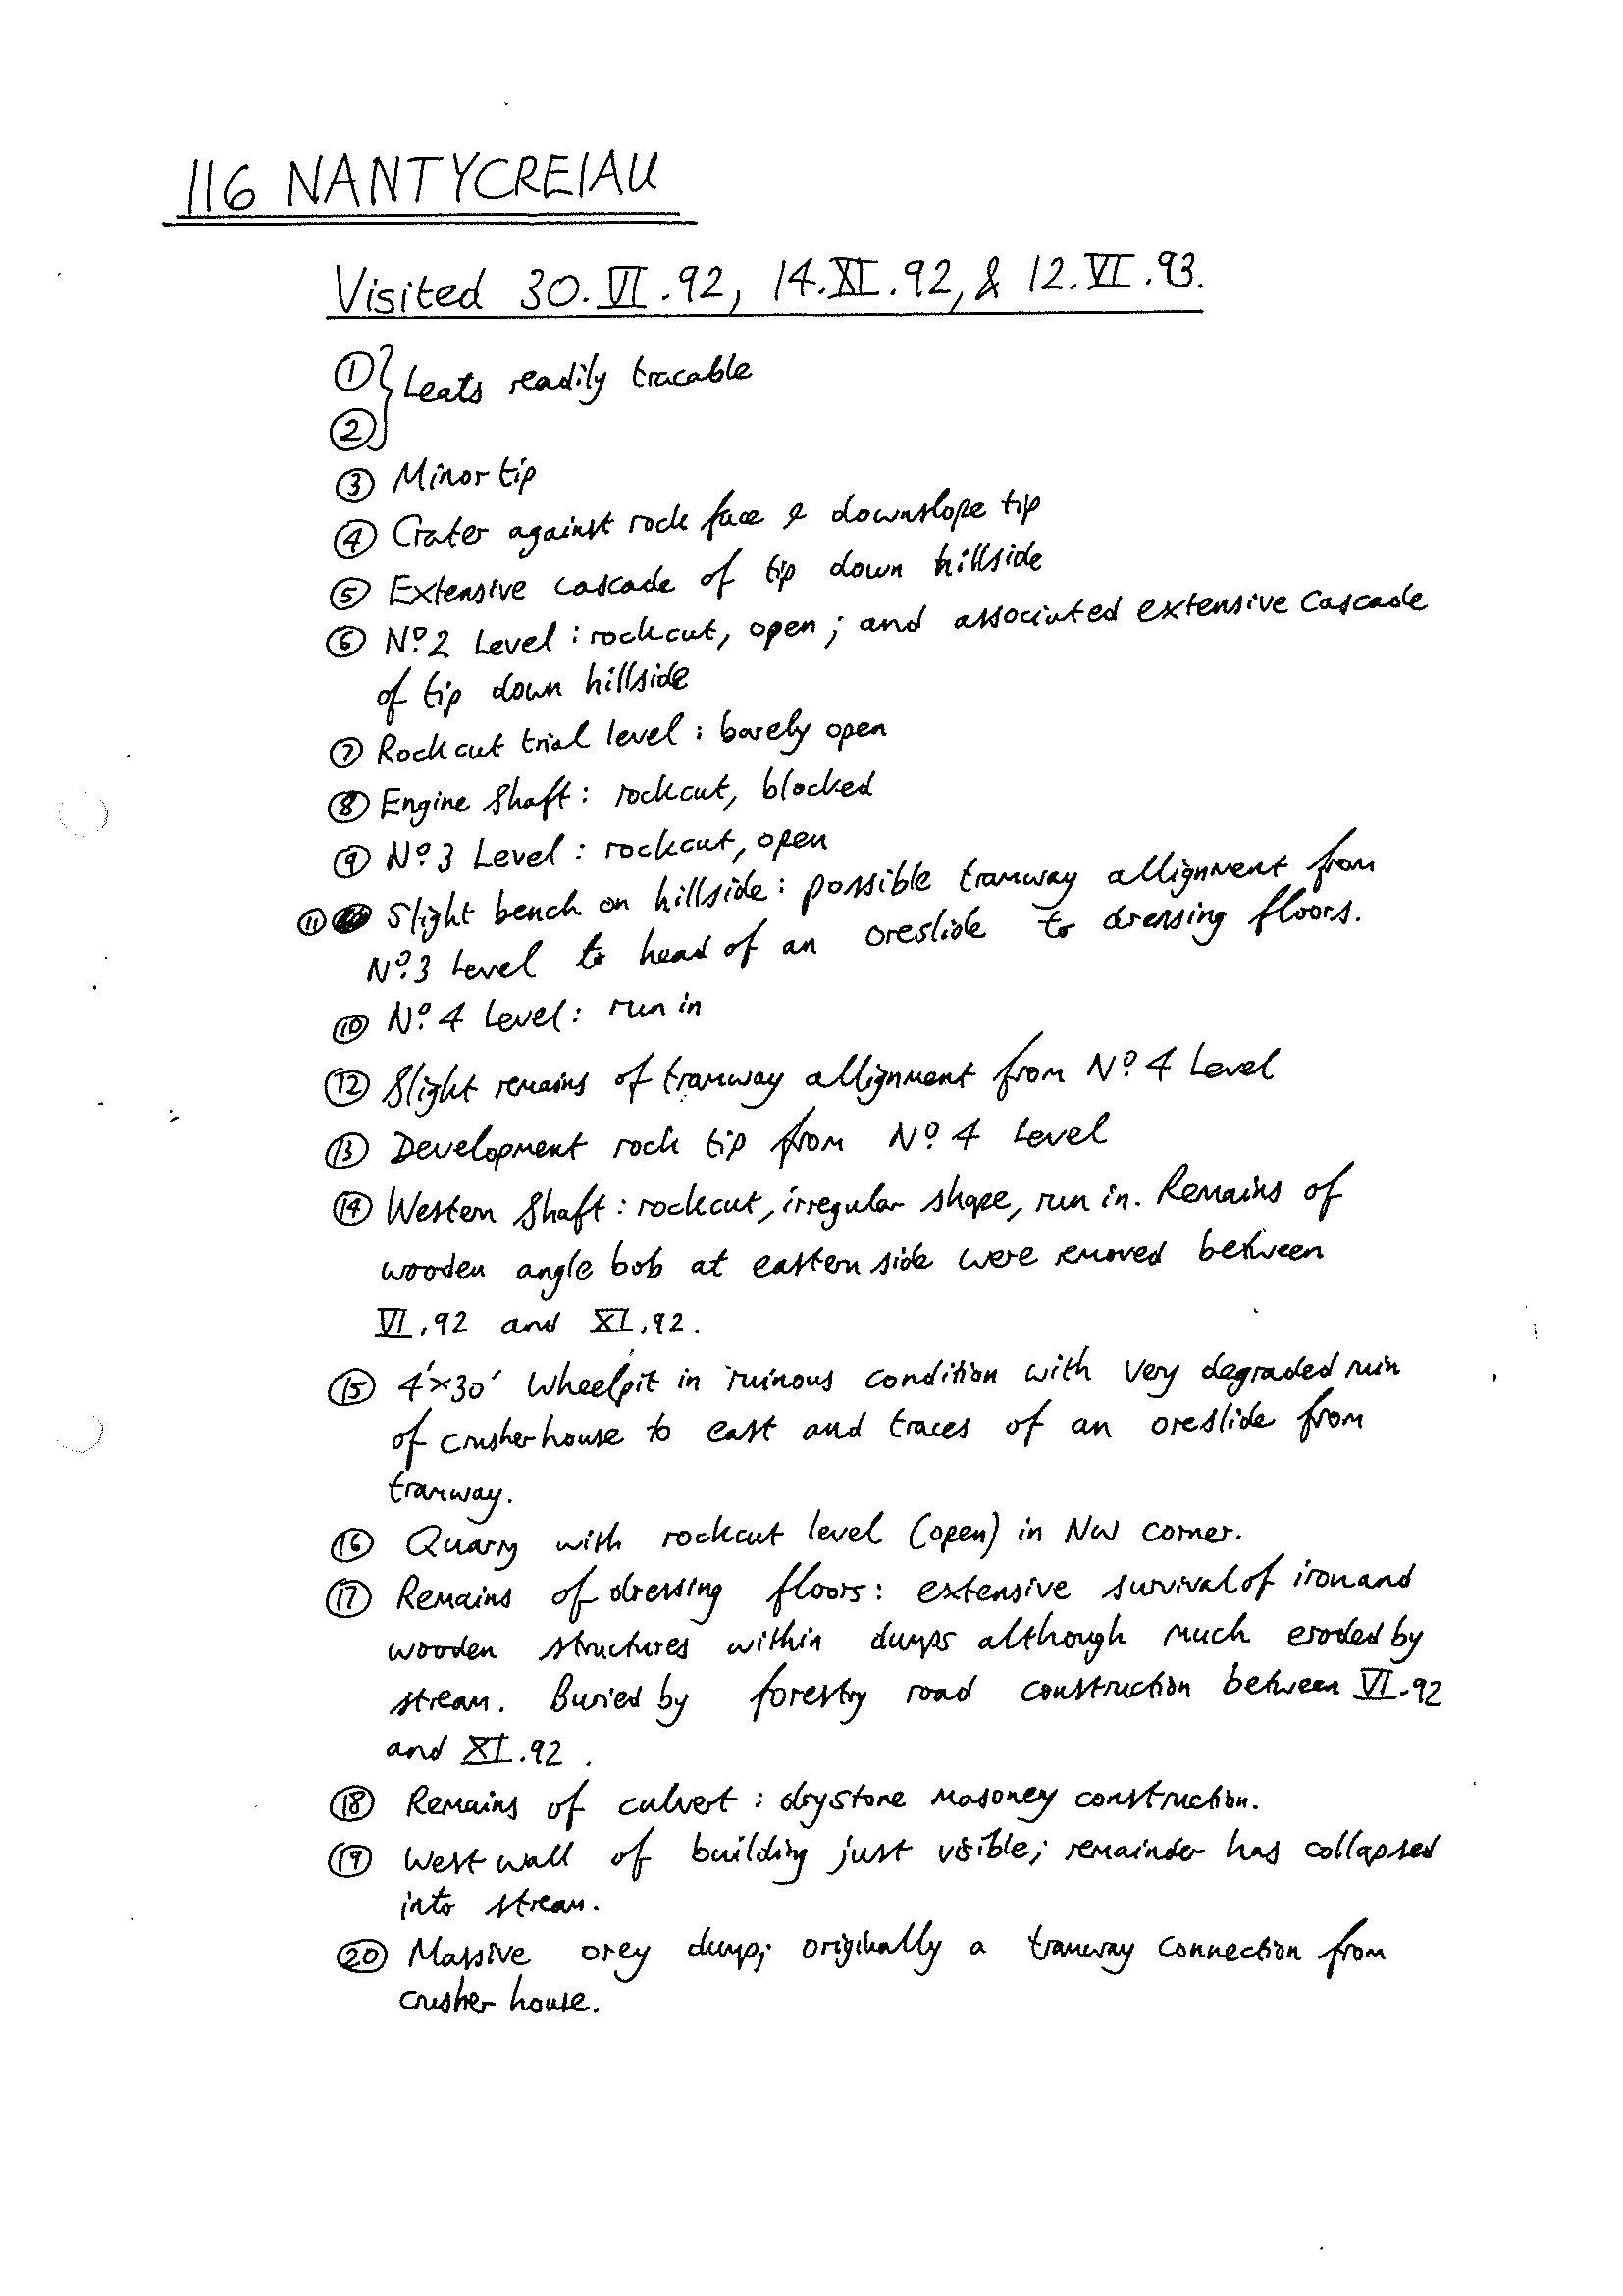 116 NANTYCREIAU
Visited 30.VI.92, 14.XI.92, & 12.VI.93.
① Leats readily tracable
②
③ Minor tip
④ Crater against rock face & downslope tip
⑤ Extensive cascade of tip down hillside
⑥ Nº.2 Level : rockcut, open ; and associated extensive cascade
of tip down hillside
⑦ Rockcut trial level : barely open
⑧ Engine Shaft : rockcut, blocked
⑨ Nº.3 Level : rockcut, open
⑪ Slight bench on hillside : possible tramway allignment from
Nº.3 Level to head of an oreslide to dressing floors.
⑩ Nº.4 Level : run in
⑫ Slight remains of tramway allignment from Nº.4 Level
⑬ Development rock tip from Nº.4 Level
⑭ Western Shaft : rockcut, irregular shape, run in. Remains of
wooden angle bob at eastern side were removed between
VI.92 and XI.92.
⑮ 4'×30' Wheelpit in ruinous condition with very degraded ruin
of crusherhouse to east and traces of an oreslide from
tramway.
⑯ Quarry with rockcut level (open) in NW corner.
⑰ Remains of dressing floors : extensive survival of iron and
wooden structures within dumps although much eroded by
stream. Buried by forestry road construction between VI.92
and XI.92.
⑱ Remains of culvert : drystone masonry construction.
⑲ West wall of building just visible; remainder has collapsed
into stream.
⑳ Massive orey dump; originally a tramway connection from
crusher house.